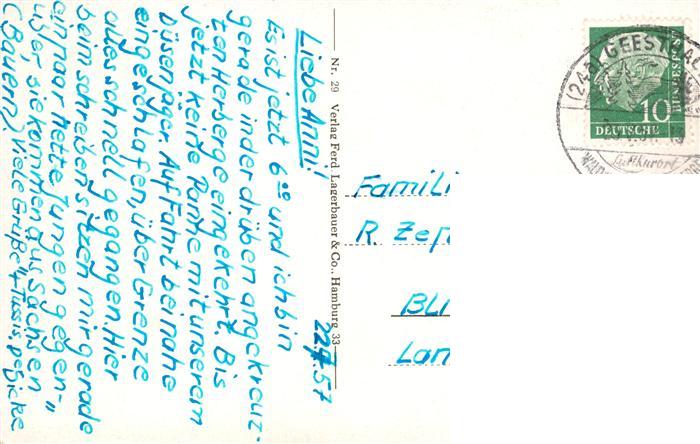 22.9.57
Liebe Anni!
Es ist jetzt 6⁰⁰ und ich bin
gerade in der drüben angekreuz-
ten Herberge eingekehrt. Bis
jetzt keine Panne mit unserem
Düsenjäger. Auf Fahrt beinahe
eingeschlafen, über Grenze
alles schnell gegangen. Hier
beim schreiben sitzen mir gerade
ein paar nette Jungen gegen-
über, sie kommten aus Sachsen
(Bauern). Viele Grüße
Nr. 29 Verlag Ferd. Lagerbauer & Co., Hamburg 33
Famili
R. Zep
BLI
Lan
(24a) GEESTHAC
Luftkurort
10
DEUTSCHE
BUNDESPOS